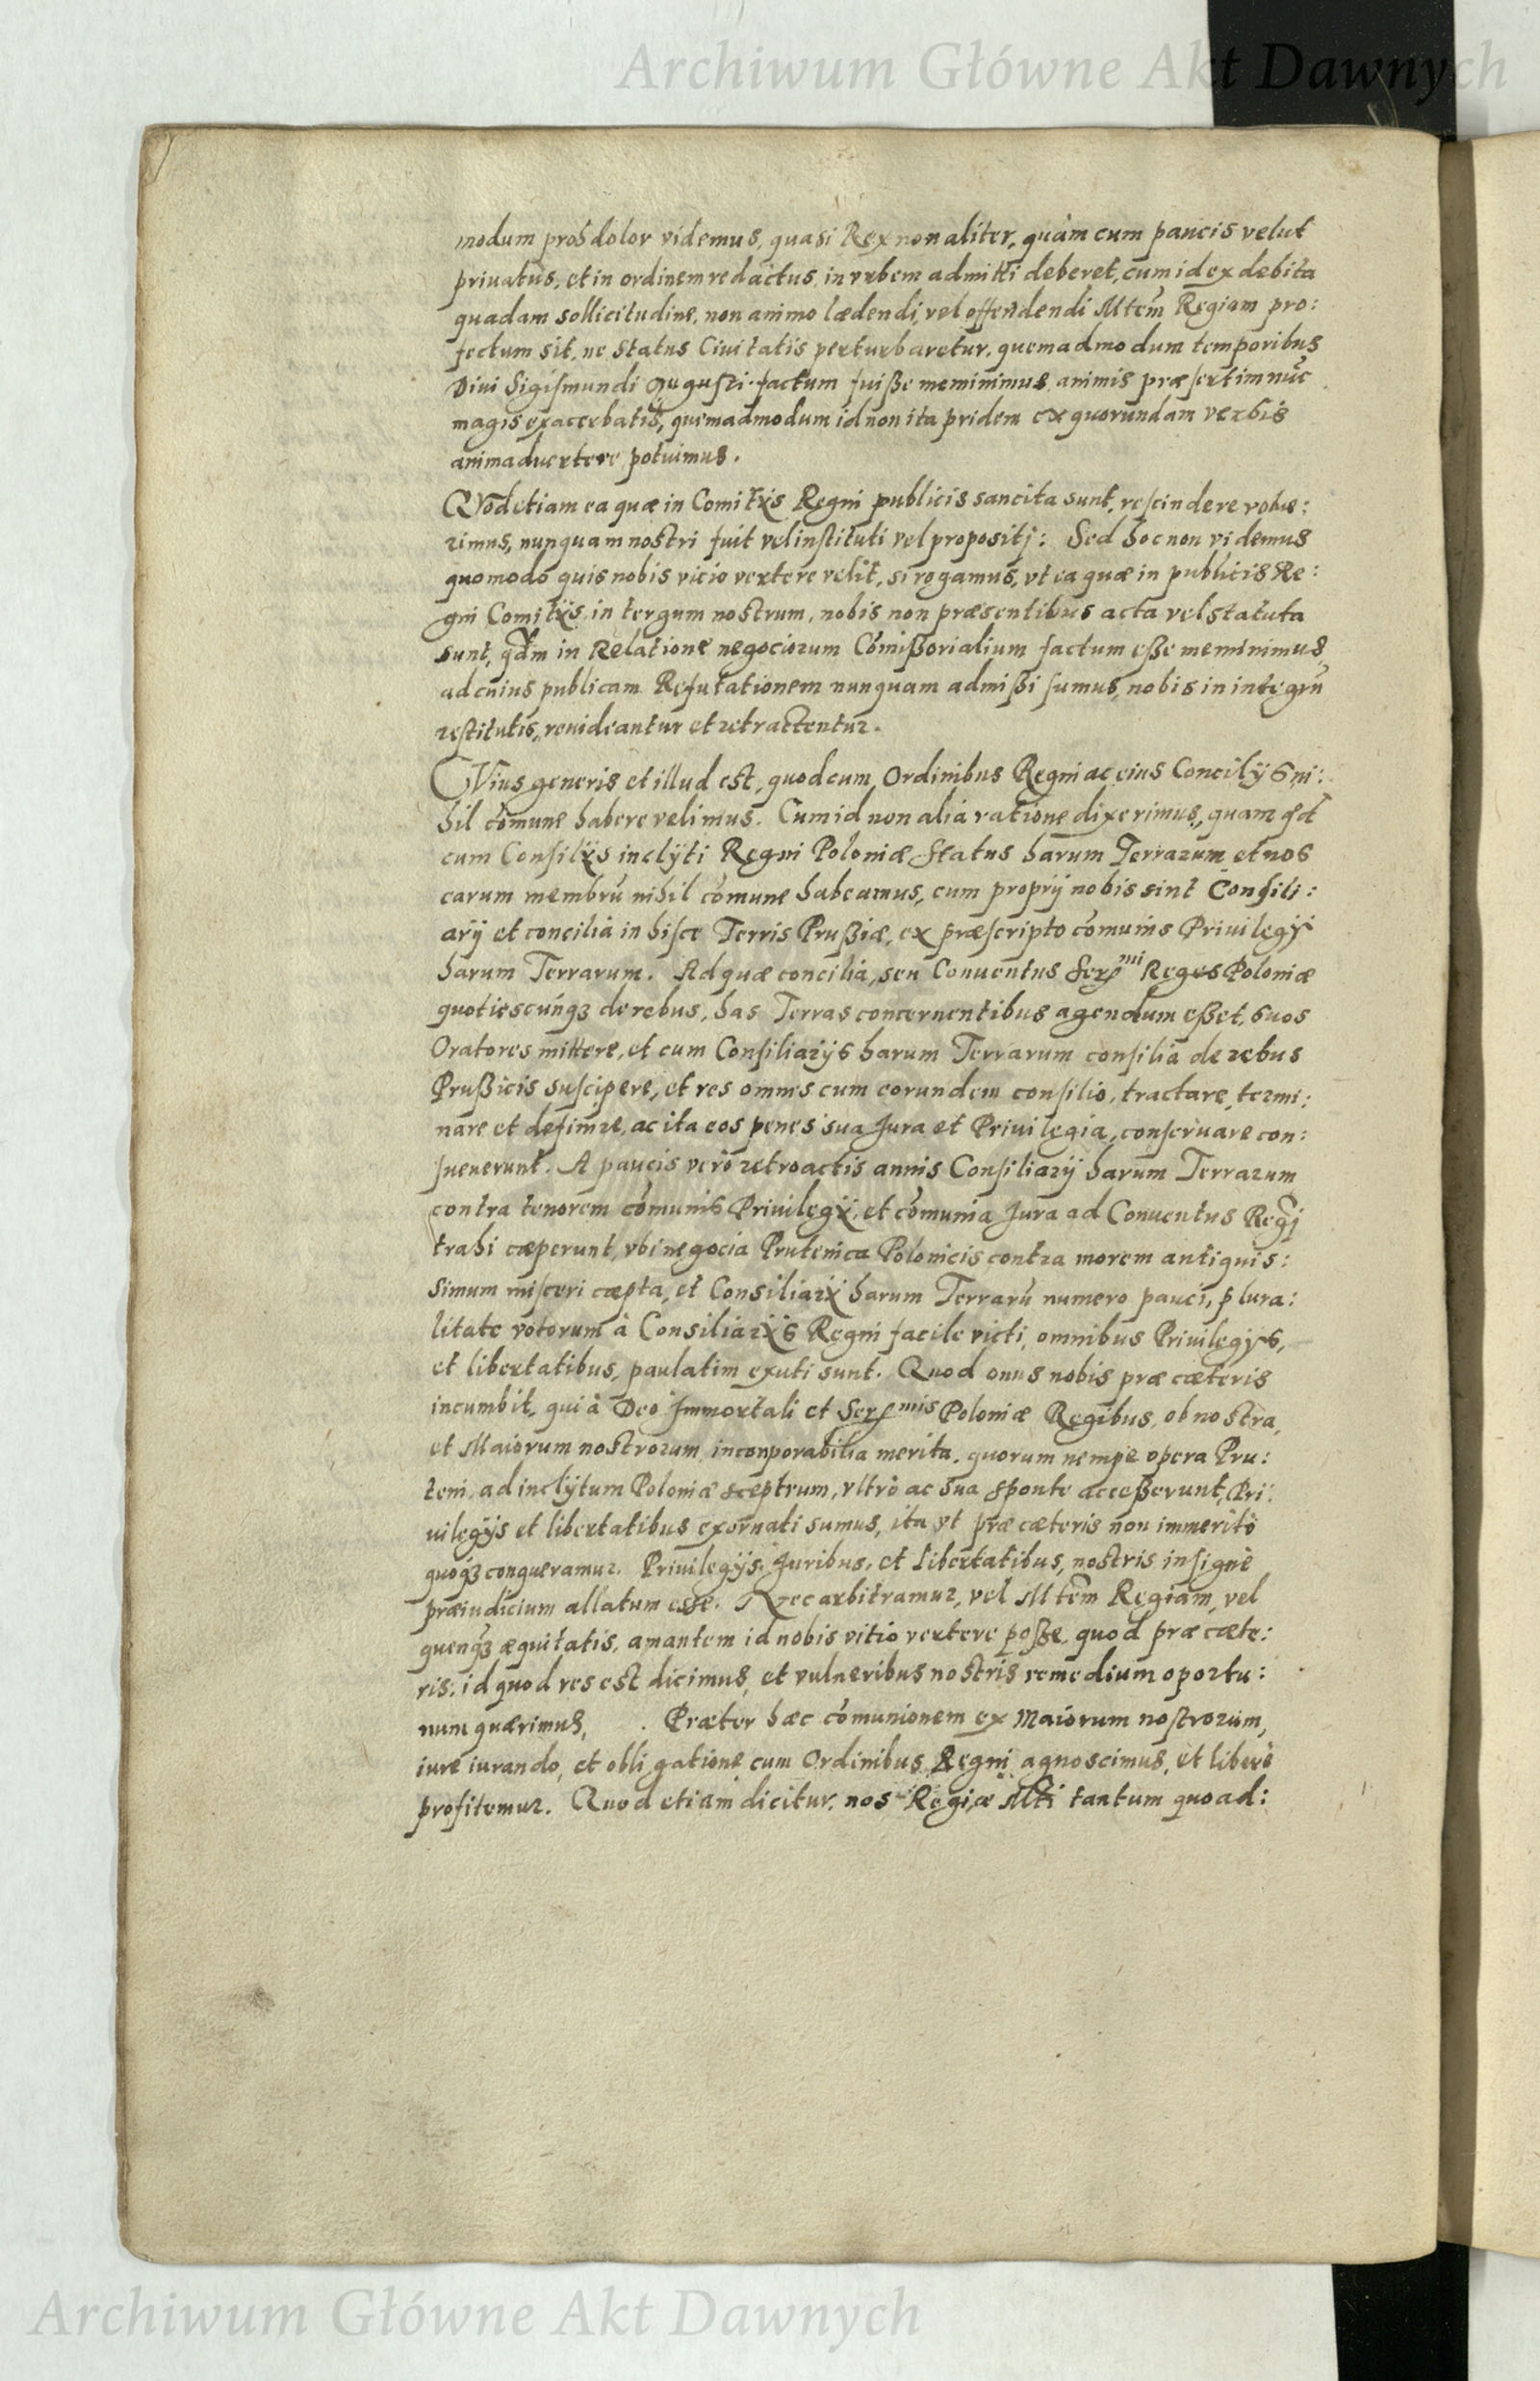 Archiwum Główne Akt Dawnych
modum proh dolor videmus, quasi Rex non aliter, quàm cum paucis velut
priuatus, et in ordinem redactus, in vrbem admitti deberet, cum id ex debita
quadam sollicitudine, non animo lædendi, vel offendendi Mtem̃ Regiam pro:
fectum sit, ne Status Ciuitatis perturbaretur, quemadmodum temporibus
Diui Sigismundi Augusti factum fuiße meminimus, animis præsertim nũc
magis exacerbatis, quemadmodum id non ita pridem ex quorundam verbis
animaduertere potuimus.
QVod etiam ea quæ in Comitijs Regni publicis sancita sunt, rescindere volue:
rimus, nunquam nostri fuit vel instituti vel propositj: Sed hoc non videmus
quomodo quis nobis vicio vertere velit, si rogamus, vt ea quæ in publicis Re:
gni Comitijs, in tergum nostrum, nobis non præsentibus acta vel statuta
sunt, qd̃m in Relatione negociorum Com̃ißorialium factum eße meminimus,
ad cuius publicam Refutationem nunquam admißi sumus, nobis in integrũ
restitutis, reuideantur et retractentur.
CVius generis et illud est, quod cum Ordinibus Regni ac eius Concilijs ni:
hil com̃une habere velimus. Cum id non alia ratione dixerimus, quam qd̃
cum Consilijs inclyti Regni Poloniæ Status harum Terrarum et nos
earum membrũ nihil com̃une habeamus, cum proprij nobis sint Consili:
arij et concilia in hisce Terris Prußiæ, ex præscripto com̃unis Priuilegij
harum Terrarum. Ad quæ concilia, seu Conuentus Serͫⁱ Reges Poloniæ
quotiescunq3 de rebus, has Terras concernentibus agendum eßet, suos
Oratores mittere, et cum Consiliarijs harum Terrarum consilia de rebus
Prußicis suscipere, et res omnes cum eorundem consilio, tractare, termi:
nare et definire, ac ita eos penes sua Jura et Priuilegia, conseruare con:
sueuerunt. A paucis verò retroactis annis Consiliarij harum Terrarum
contra tenorem com̃unis Priuilegij, et com̃unia Jura ad Conuentus Regnj
trahi cæperunt, vbi negocia Prutenica Polonicis contra morem antiquis:
simum misceri cæpta, et Consiliarij harum Terrarũ numero pauci, plura:
litate votorum à Consiliarijs Regni facile victi, omnibus Priuilegijs,
et libertatibus, paulatim exuti sunt. Quod onus nobis præ cæteris
incumbit, qui à Deo Immortali et Serᵐⁱˢ Poloniæ Regibus, ob nostra,
et Maiorum nostrorum inconparabilia merita, quorum nempe opera Pru:
teni, ad inclytum Poloniæ sceptrum, vltrò ac sua sponte acceßerunt, Pri:
uilegijs et libertatibus exornati sumus, ita vt præ cæteris non immeritò
quoq3 conqueramur. Priuilegijs, Juribus, et libertatibus, nostris insigne
præiudicium allatum esse. Nec arbitramur, vel Mtem̃ Regiam, vel
quenq3 æquitatis, amantem id nobis vitio vertere poße, quod præ cæte:
ris, id quod res est dicimus, et vulneribus nostris remedium oportu:
num quærimus, . Præter hæc com̃unionem ex Maiorum nostrorum,
iure iurando, et obligatione cum Ordinibus Regni agnoscimus, et liberè
profitemur. Quod etiam dicitur, nos Regiæ Mti tantum quoad:
Archiwum Główne Akt Dawnych